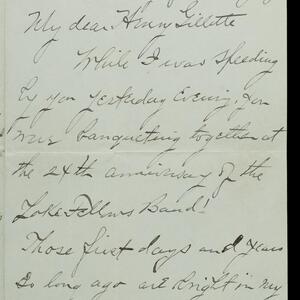 My dear Henry Gillette
While I was speeding
by you yesterday evening, you
were banqueting together at
the 24th anniversay of the
Yoke Fellows Band!
Those first days and years
so long ago are bright in my